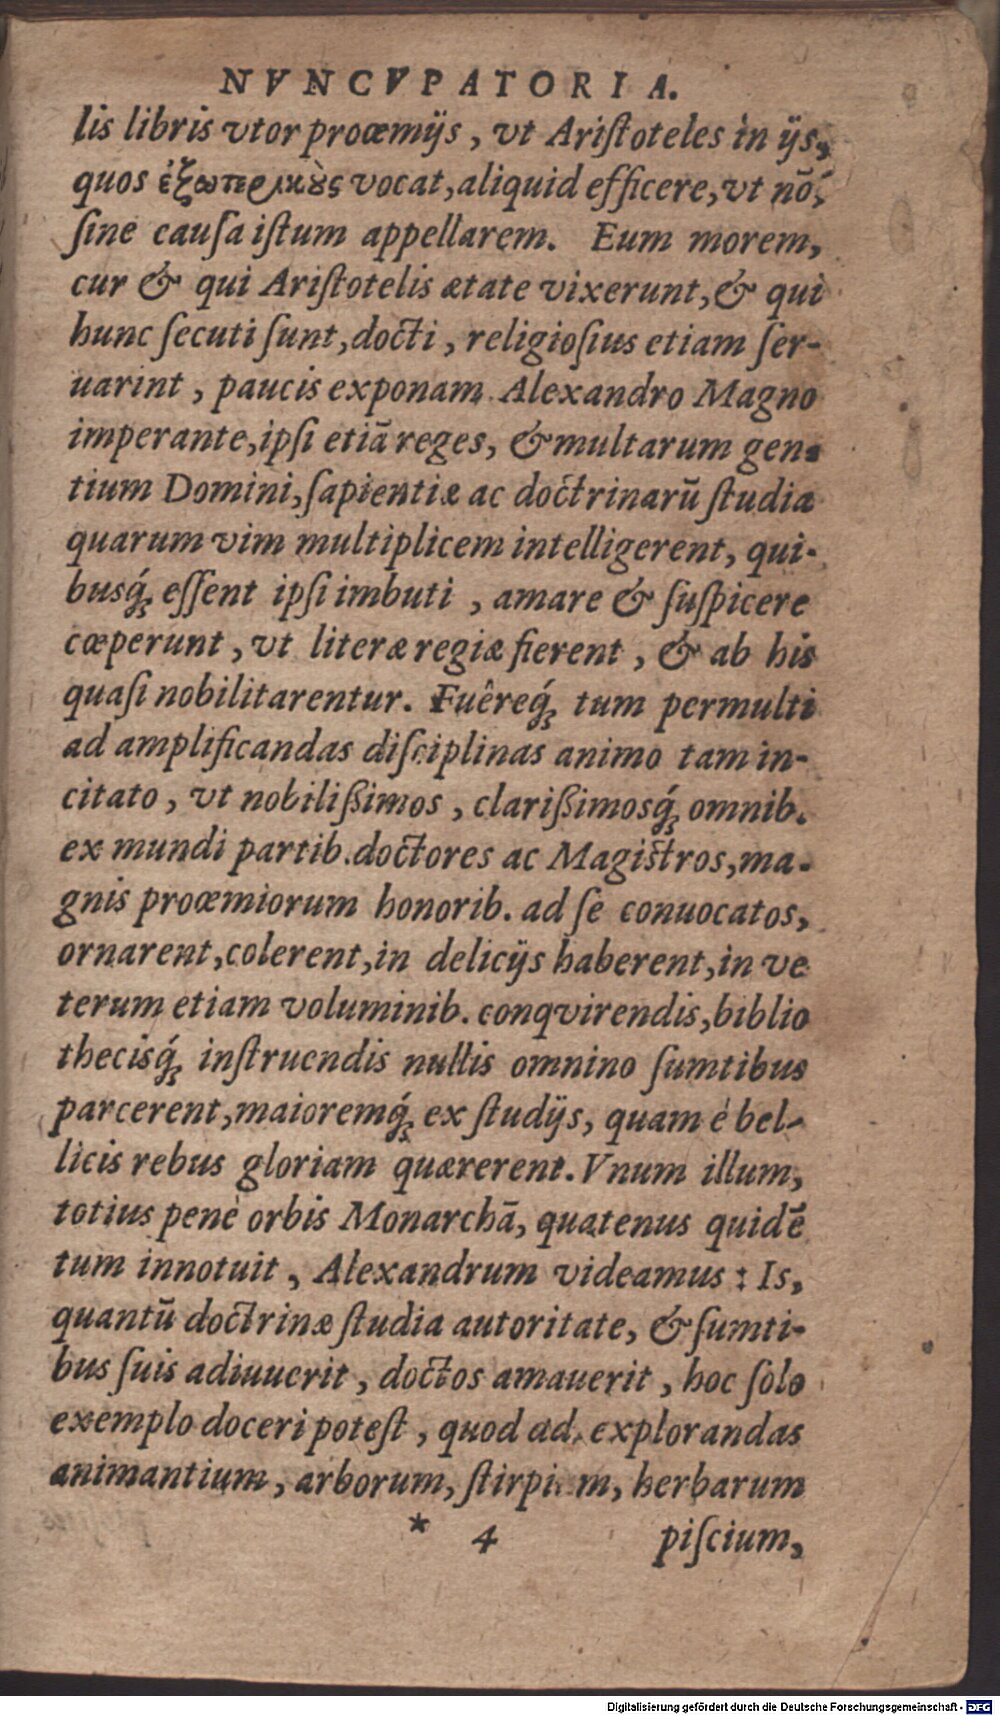 NVNCVPATORIA.
lis libris vtor proœmijs, vt Ariſtoteles in ijs,
quos ἐξωτερικοὺς vocat, aliquid efficere, vt nō
ſine cauſa iſtum appellarem. Eum morem,
cur & qui Ariſtotelis ætate vixerunt, & qui
hunc ſecuti ſunt, docti, religioſius etiam ſer-
uarint, paucis exponam. Alexandro Magno
imperante, ipſi etiā reges, & multarum gen-
tium Domini, ſapientiæ ac doctrinarū ſtudia
quarum vim multiplicem intelligerent, qui-
busq́; eſſent ipſi imbuti, amare & ſuſpicere
cœperunt, vt literæ regiæ fierent, & ab his
quaſi nobilitarentur. Fuêreq́; tum permulti
ad amplificandas diſciplinas animo tam in-
citato, vt nobilißimos, clarißimosq́; omnib.
ex mundi partib. doctores ac Magiſtros, ma-
gnis proœmiorum honorib. ad ſe conuocatos,
ornarent, colerent, in delicijs haberent, in ve
terum etiam voluminib. conqvirendis, biblio
thecisq́; inſtruendis nullis omnino ſumtibus
parcerent, maioremq́; ex ſtudijs, quam è bel-
licis rebus gloriam quærerent. Vnum illum,
totius penè orbis Monarchā, quatenus quidē
tum innotuit, Alexandrum videamus: Is,
quantū doctrinæ ſtudia autoritate, & ſumti-
bus ſuis adiuuerit, doctos amauerit, hoc ſolo
exemplo doceri poteſt, quod ad explorandas
animantium, arborum, ſtirpium, herbarum
* 4 piſcium,
Digitalisierung gefördert durch die Deutsche Forschungsgemeinschaft - DFG